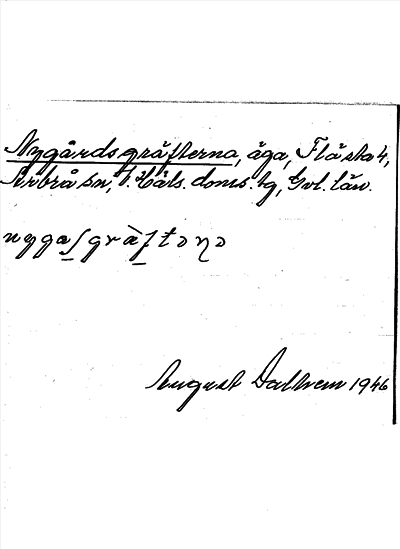 Nygårdsgräfterna, äga, Flästa 4,
Arbrå sn, V. Häls. doms. tg, Gvl. län.
nyga̱ʃgrä̀f̱təṇə
August Dalhem 1946